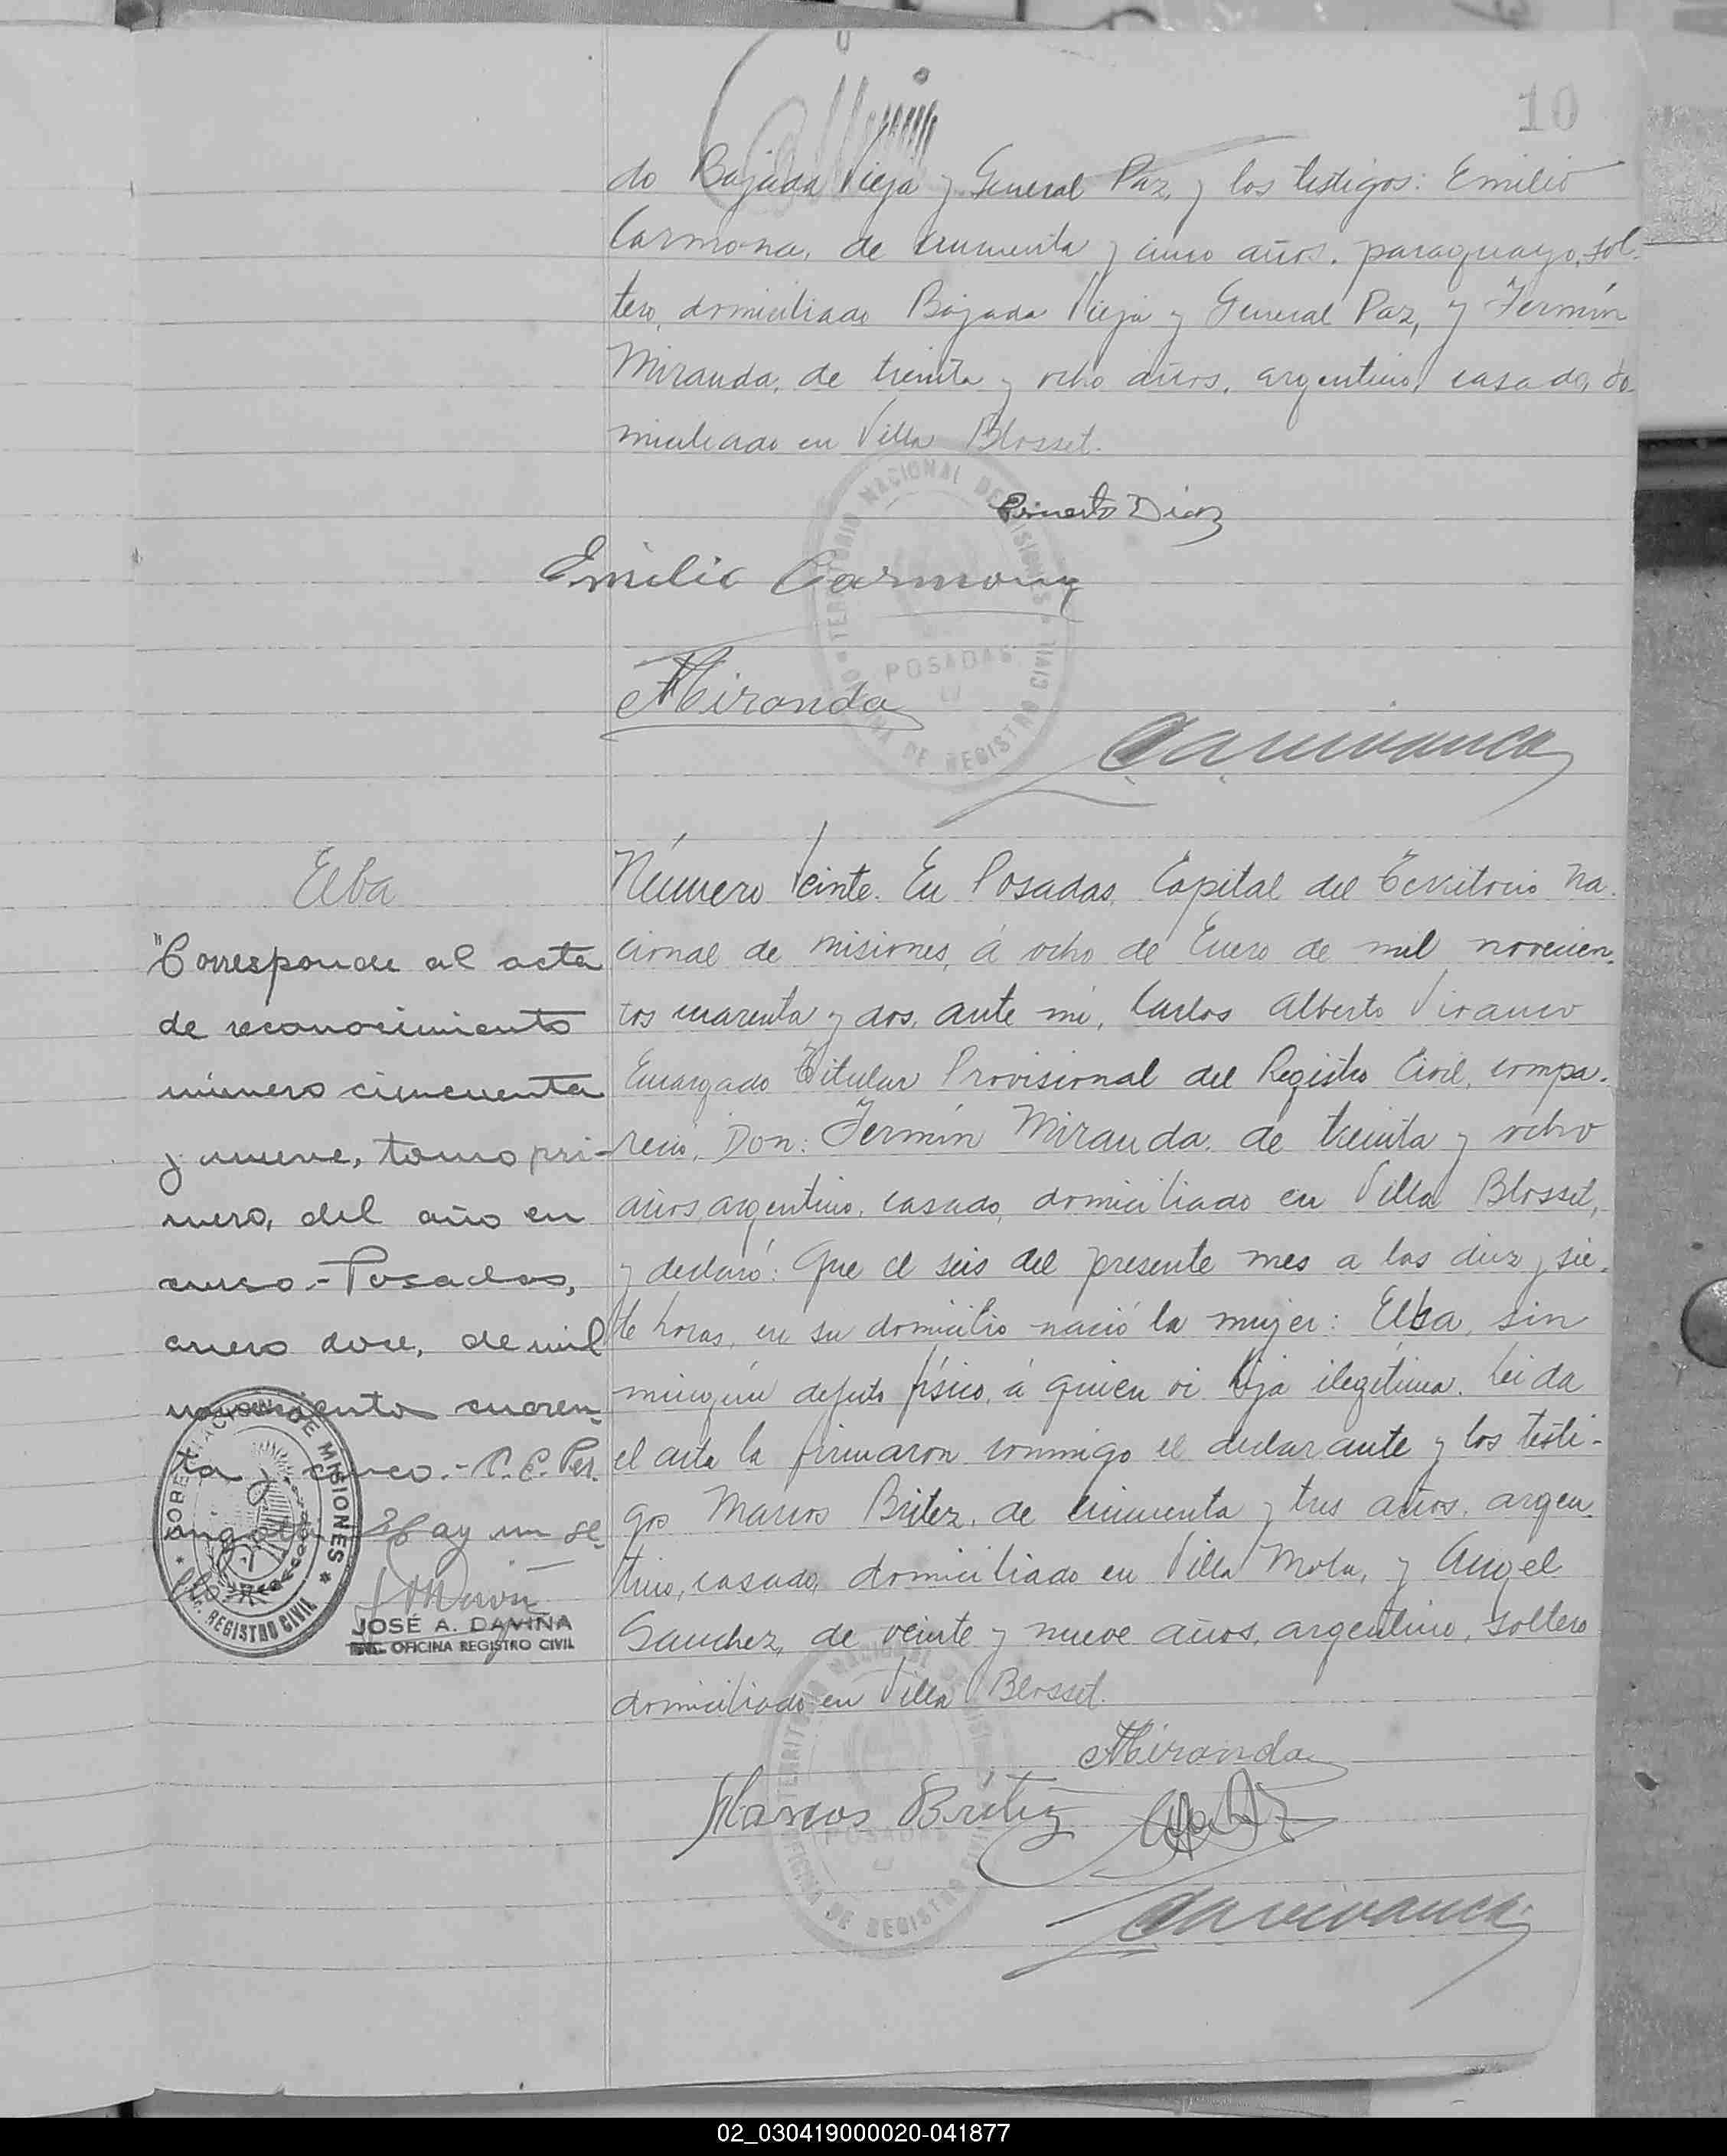 10
do Bajada Vieja y General Paz, y los testigos: Emilio
Carmona, de cincuenta y cinco años, paraguayo, sol-
tero, domiciliado Bajada Vieja y General Paz, y Fermín
Miranda, de treinta y ocho años, argentino, casado, do-
miciliado en Villa Blosset.
Ernesto Diaz
Emilio Carmona
Miranda
TERRITORIO NACIONAL DE MISIONES
POSADAS
OFICINA DE REGISTRO CIVIL
Elba
"Corresponde al acta
de reconocimiento
número cincuenta
y nueve, tomo pri-
mero, del año en
curso.- Posadas,
enero doce, de mil
novecientos cuaren-
ta y cinco.-
Hay un se-
llo
GOBERNACION DE MISIONES
REGISTRO CIVIL
JOSÉ A. DAVIÑA
ENC. OFICINA REGISTRO CIVIL
Número Veinte. En Posadas, Capital del Territorio Na-
cional de Misiones, á ocho de Enero de mil novecien-
tos cuarenta y dos, ante mi, Carlos Alberto Vivanco
Encargado Titular Provisional del Registro Civil, compa-
reció, Don: Fermín Miranda, de treinta y ocho
años, argentino, casado, domiciliado en Villa Blosset,
y declaró: Que el seis del presente mes a las diez y sie-
te horas, en su domicilio nació la mujer: Elba, sin
ningún defecto físico, á quien vi hija ilegítima. Leida
el acta la firmaron conmigo el declarante y los testi-
gos Marcos Britez, de cincuenta y tres años, argen-
tino, casado, domiciliado en Villa Mola, y Angel
Sanchez, de veinte y nueve años, argentino, soltero
domiciliado en Villa Blosset.
Miranda
Marcos Britez
TERRITORIO NACIONAL DE MISIONES
POSADAS
OFICINA DE REGISTRO CIVIL
02_030419000020-041877